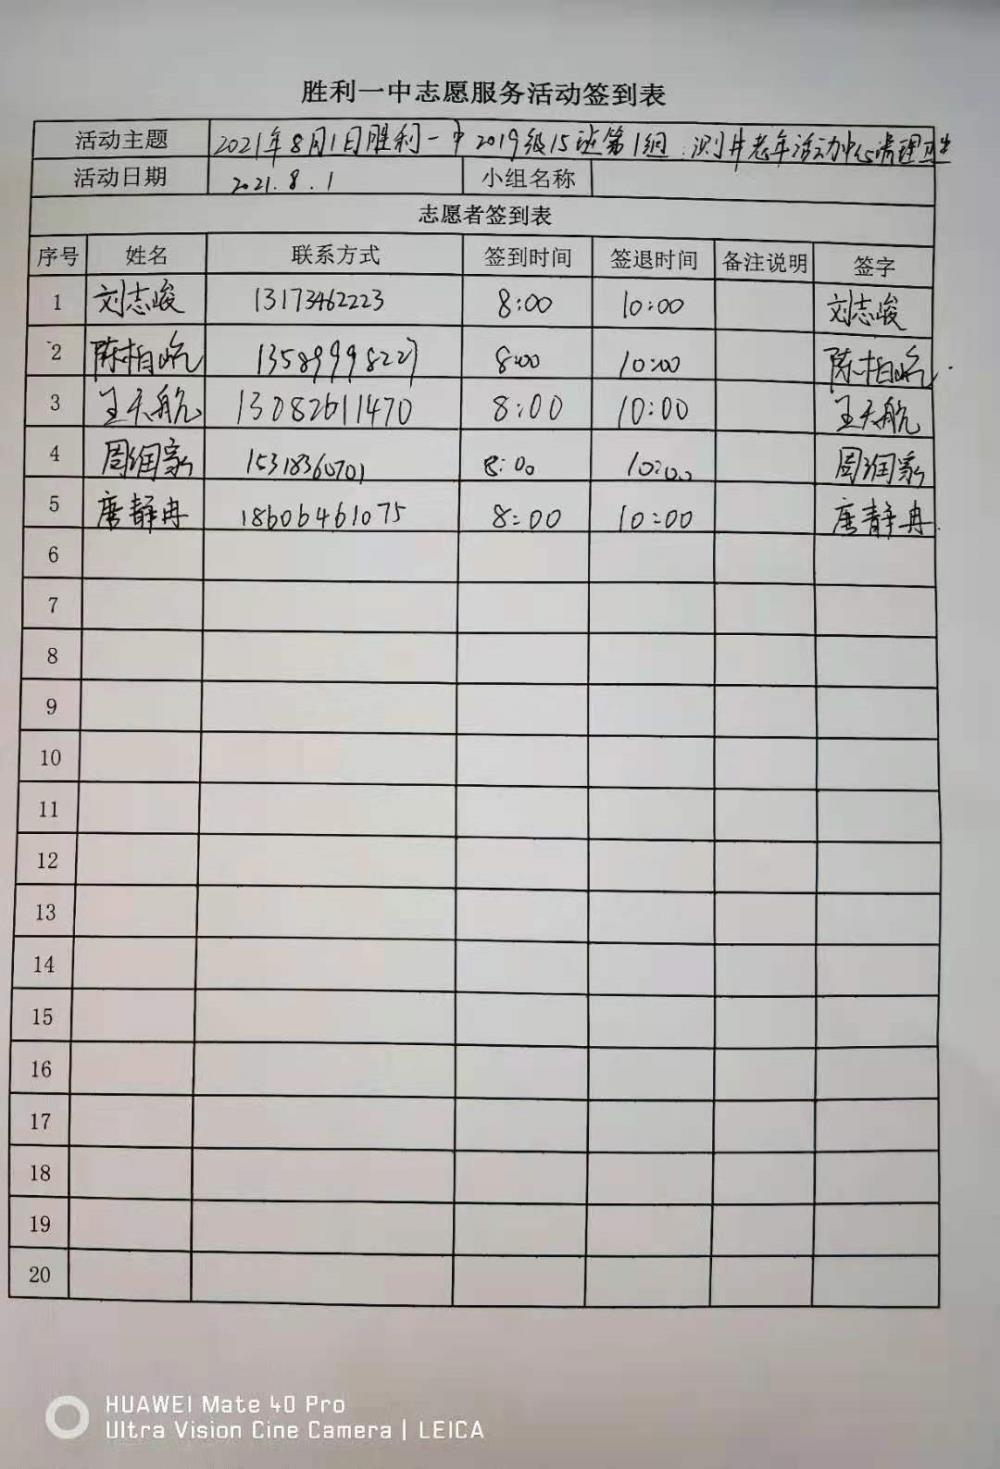 胜利一中志愿服务活动签到表
活动主题 2021年8月1日胜利一中2019级15班第1组 测井老年活动中心清理卫生
活动日期 2021.8.1 小组名称
志愿者签到表
序号 姓名 联系方式 签到时间 签退时间 备注说明 签字
1 刘志峻 13173462223 8:00 10:00 刘志峻
2 陈柏屹 13589998227 8:00 10:00 陈柏屹
3 王天航 13082611470 8:00 10:00 王天航
4 周润家 15318360701 8:00 10:00 周润家
5 唐静冉 18606461075 8:00 10:00 唐静冉
6
7
8
9
10
11
12
13
14
15
16
17
18
19
20
HUAWEI Mate 40 Pro
Ultra Vision Cine Camera | LEICA